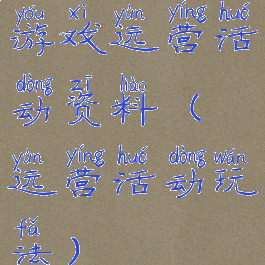 yóu xì yùn yíng huó
游戏运营活
dòng zī liào
动资料（
yùn yíng huó dòng wán
运营活动玩
fǎ
法）